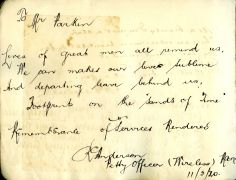 To
Mr Parker
Lives of great men all remind us,
We can make our lives sublime
And departing leave behind us,
Footprints on the "Sands of Time"
Remembrance of Services Rendered
R Anderson
Petty Officer (Wireless)
11/3/20.